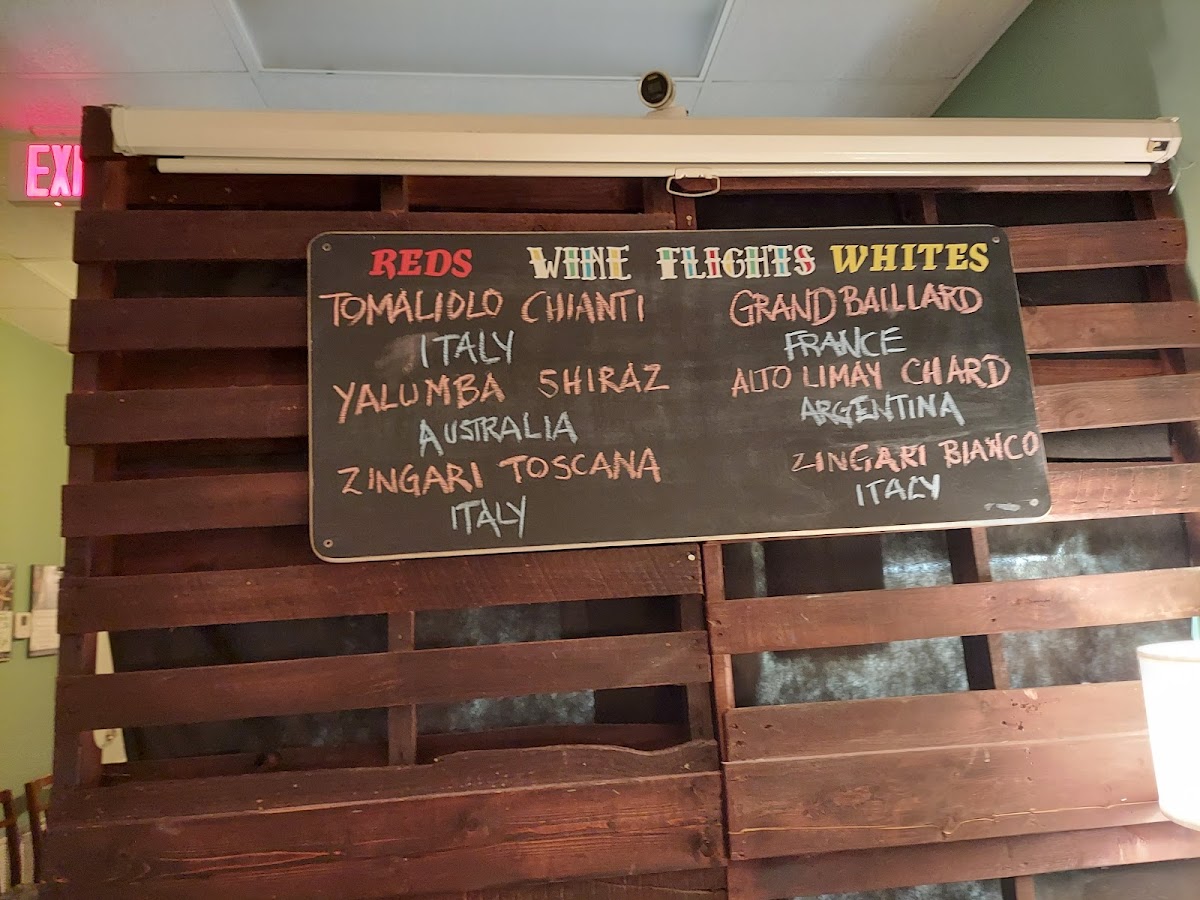 EXI
REDS WINE FLIGHTS WHITES
TOMALIOLO CHIANTI
ITALY
YALUMBA SHIRAZ
AUSTRALIA
ZINGARI TOSCANA
ITALY
GRAND BAILLARD
FRANCE
ALTO LIMAY CHARD
ARGENTINA
ZINGARI BIANCO
ITALY